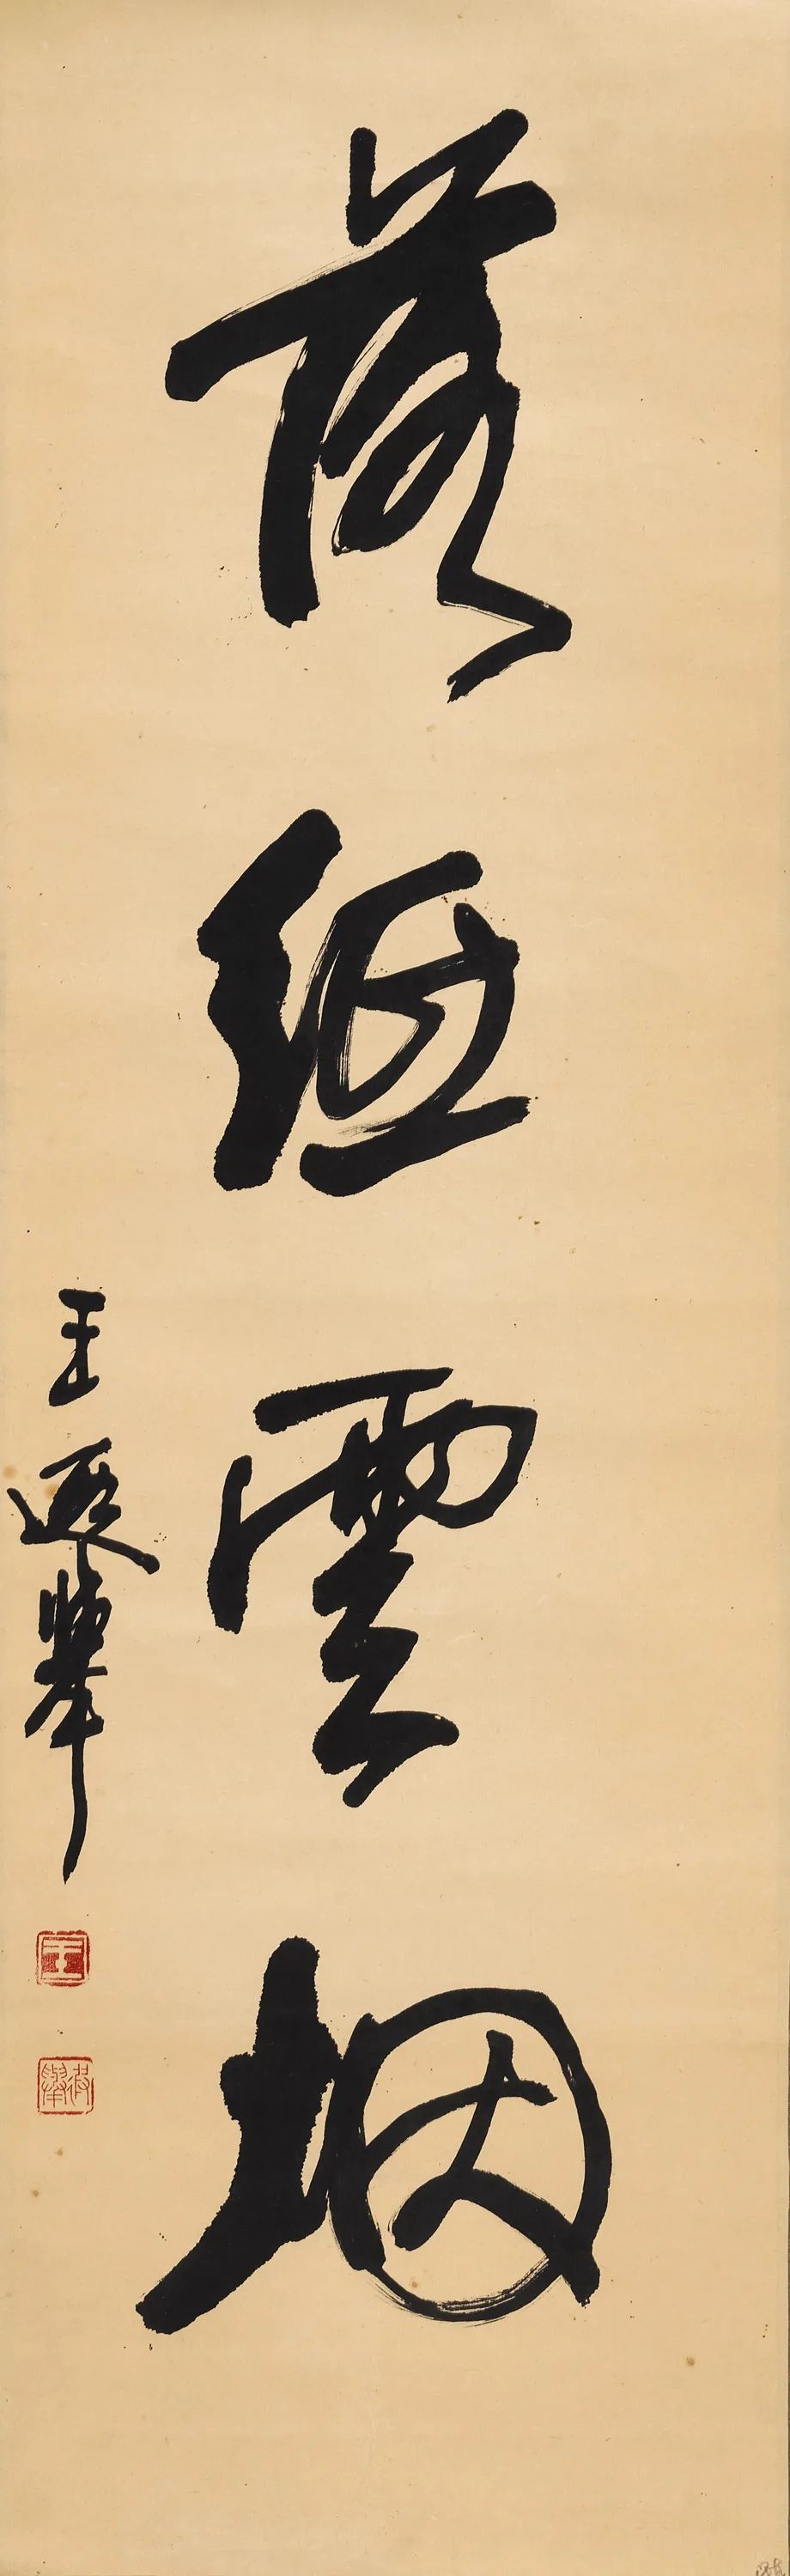 落紙雲烟
王遐舉
王
遐舉